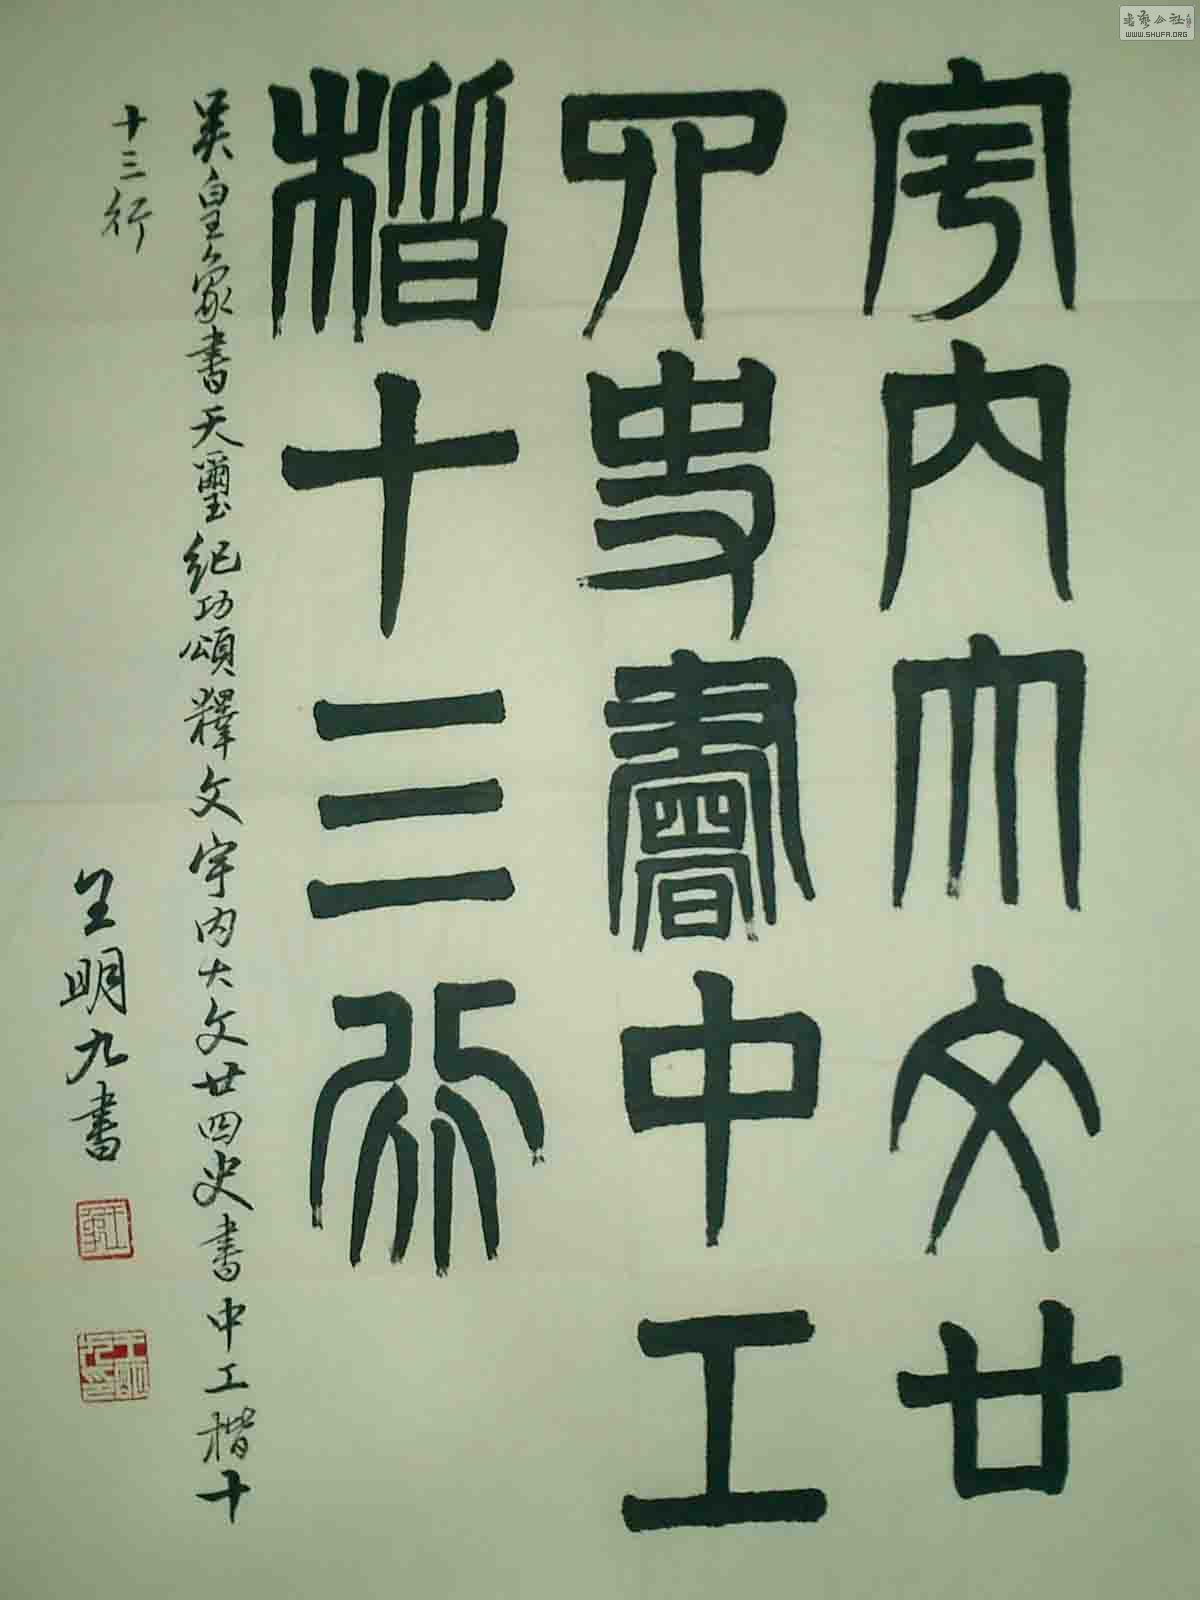 宇内大文廿
四史書中工
楷十三行
吴皇象書天璽纪功頌釋文宇内大文廿四史書中工楷十
十三行
王明九書
書藝公社
WWW.SHUFA.ORG